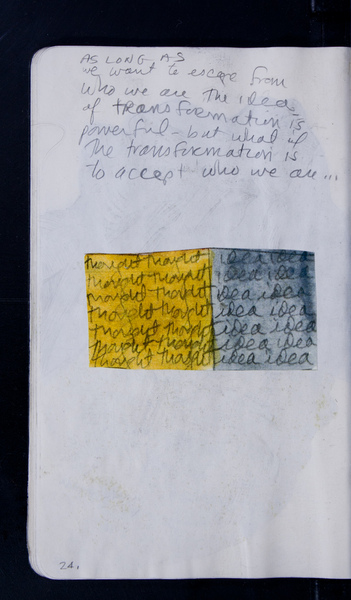 AS LONG AS
we want to escape from
who we are the idea
of transformation is
powerful - but what if
the transformation is
to accept who we are...
thought thought idea idea
thought thought idea idea
thought thought idea idea
thought thought idea idea
thought thought idea idea
thought thought idea idea
thought thought idea idea
24.